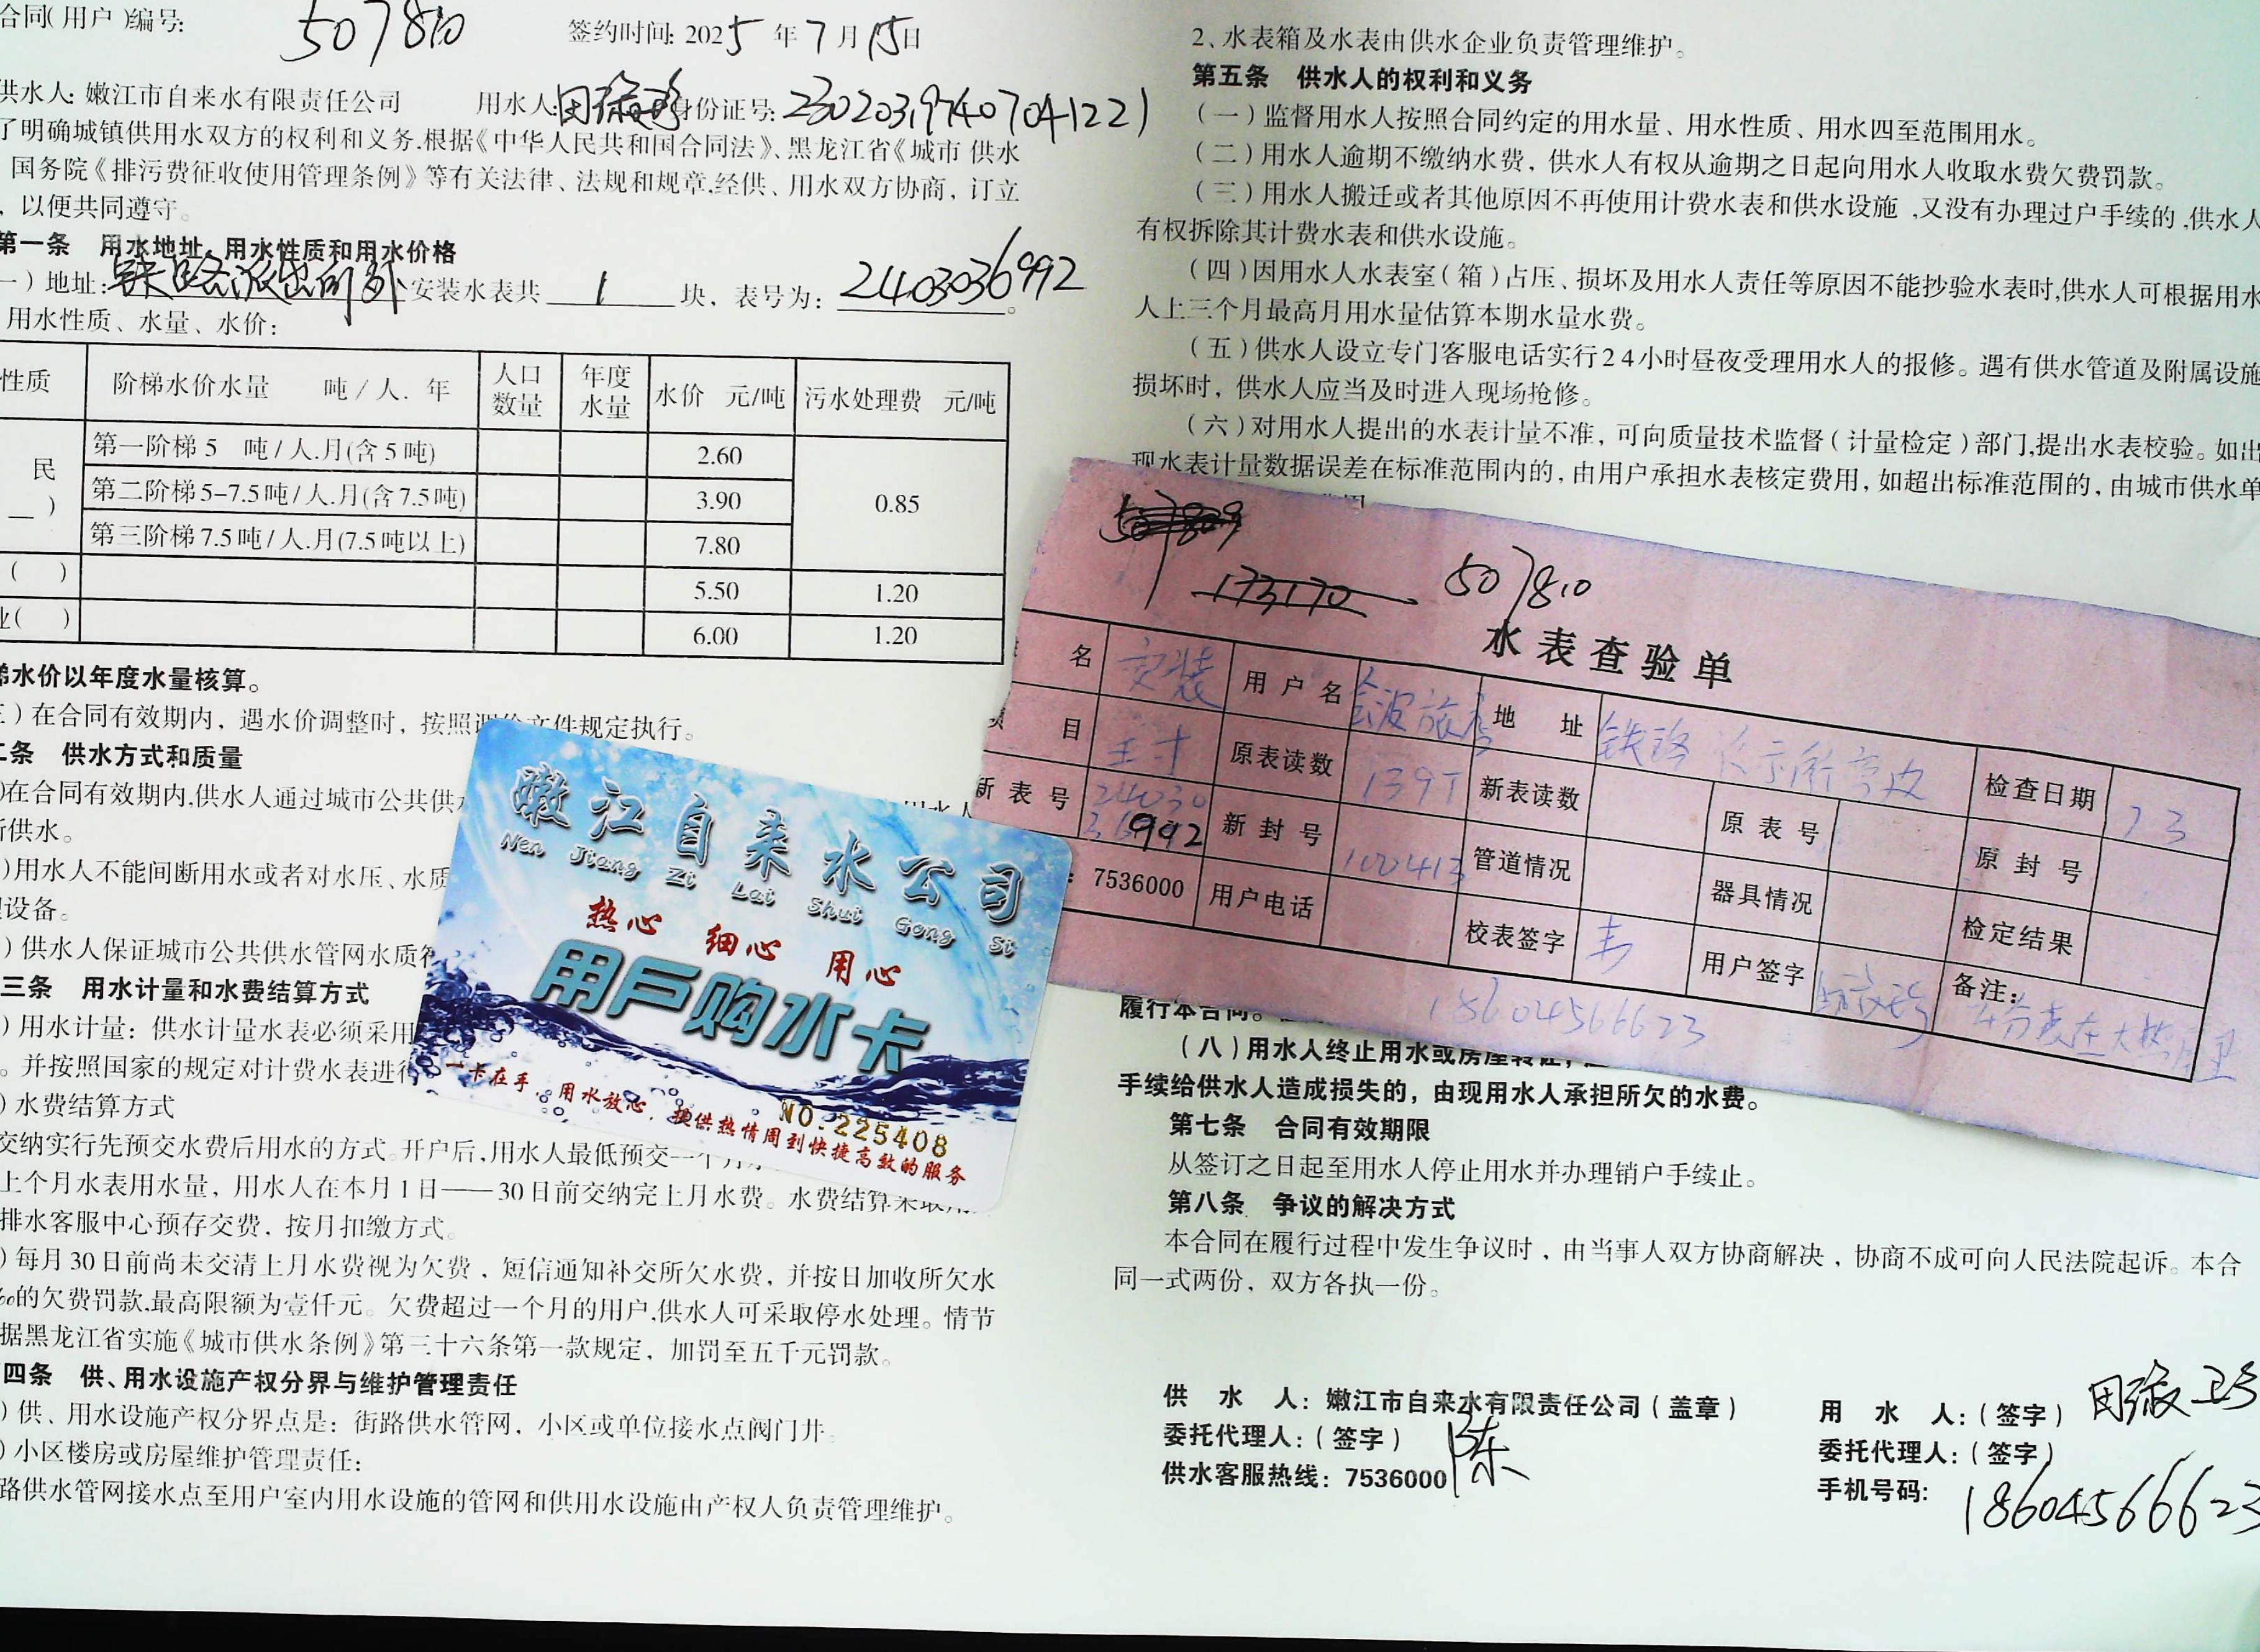 合同(用户)编号: 507810 签约时间: 2025年7月15日
供水人: 嫩江市自来水有限责任公司 用水人: 田淑 身份证号: 230203197407041221
了明确城镇供用水双方的权利和义务.根据《中华人民共和国合同法》、黑龙江省《城市 供水
国务院《排污费征收使用管理条例》等有关法律、法规和规章.经供、用水双方协商，订立
，以便共同遵守。
第一条 用水地址、用水性质和用水价格
一)地址: 铁路派出所 安装水表共 1 块，表号为: 2403036992。
用水性质、水量、水价:
性质 阶梯水价水量 吨/人.年 人口数量 年度水量 水价 元/吨 污水处理费 元/吨
民 第一阶梯5 吨/人.月(含5吨) 2.60
第二阶梯5-7.5吨/人.月(含7.5吨) 3.90 0.85
第三阶梯7.5吨/人.月(7.5吨以上) 7.80
( ) 5.50 1.20
业( ) 6.00 1.20
梯水价以年度水量核算。
三)在合同有效期内，遇水价调整时，按照调价文件规定执行。
二条 供水方式和质量
)在合同有效期内,供水人通过城市公共供
所供水。
)用水人不能间断用水或者对水压、水质
设备。
)供水人保证城市公共供水管网水质符
三条 用水计量和水费结算方式
)用水计量: 供水计量水表必须采用
。并按照国家的规定对计费水表进行
)水费结算方式
交纳实行先预交水费后用水的方式。开户后,用水人最低预交一个月
上个月水表用水量，用水人在本月1日——30日前交纳完上月水费。水费结算采取用
排水客服中心预存交费，按月扣缴方式。
)每月30日前尚未交清上月水费视为欠费，短信通知补交所欠水费，并按日加收所欠水
‰的欠费罚款,最高限额为壹仟元。欠费超过一个月的用户,供水人可采取停水处理。情节
据黑龙江省实施《城市供水条例》第三十六条第一款规定，加罚至五千元罚款。
四条 供、用水设施产权分界与维护管理责任
)供、用水设施产权分界点是: 街路供水管网，小区或单位接水点阀门井。
)小区楼房或房屋维护管理责任:
路供水管网接水点至用户室内用水设施的管网和供用水设施由产权人负责管理维护。
嫩江自来水公司
Nen Jiang Zi Lai Shui Gong Si
热心 细心 用心
用户购水卡
一卡在手，用水放心，提供热情周到快捷高效的服务
NO:225408
2、水表箱及水表由供水企业负责管理维护。
第五条 供水人的权利和义务
(一)监督用水人按照合同约定的用水量、用水性质、用水四至范围用水。
(二)用水人逾期不缴纳水费，供水人有权从逾期之日起向用水人收取水费欠费罚款。
(三)用水人搬迁或者其他原因不再使用计费水表和供水设施，又没有办理过户手续的，供水人
有权拆除其计费水表和供水设施。
(四)因用水人水表室(箱)占压、损坏及用水人责任等原因不能抄验水表时,供水人可根据用水
人上三个月最高月用水量估算本期水量水费。
(五)供水人设立专门客服电话实行24小时昼夜受理用水人的报修。遇有供水管道及附属设施
损坏时，供水人应当及时进入现场抢修。
(六)对用水人提出的水表计量不准，可向质量技术监督(计量检定)部门,提出水表校验。如出
现水表计量数据误差在标准范围内的，由用户承担水表核定费用，如超出标准范围的，由城市供水单
173170 507810
水表查验单
名 安装 用户名 金波旅店 地址 铁路 检查日期 7 3
项目 原表读数 139T 新表读数 原表号 原封号
新表号 2403036992 新封号 100413 管道情况 器具情况 检定结果
: 7536000 用户电话 校表签字 用户签字 备注:
18604566623
履行本合同。
(八)用水人终止用水或房屋转让，
手续给供水人造成损失的，由现用水人承担所欠的水费。
第七条 合同有效期限
从签订之日起至用水人停止用水并办理销户手续止。
第八条 争议的解决方式
本合同在履行过程中发生争议时，由当事人双方协商解决，协商不成可向人民法院起诉。本合
同一式两份，双方各执一份。
供 水 人: 嫩江市自来水有限责任公司(盖章)
委托代理人:(签字) 陈
供水客服热线: 7536000
用 水 人:(签字) 田淑
委托代理人:(签字)
手机号码: 18604566623